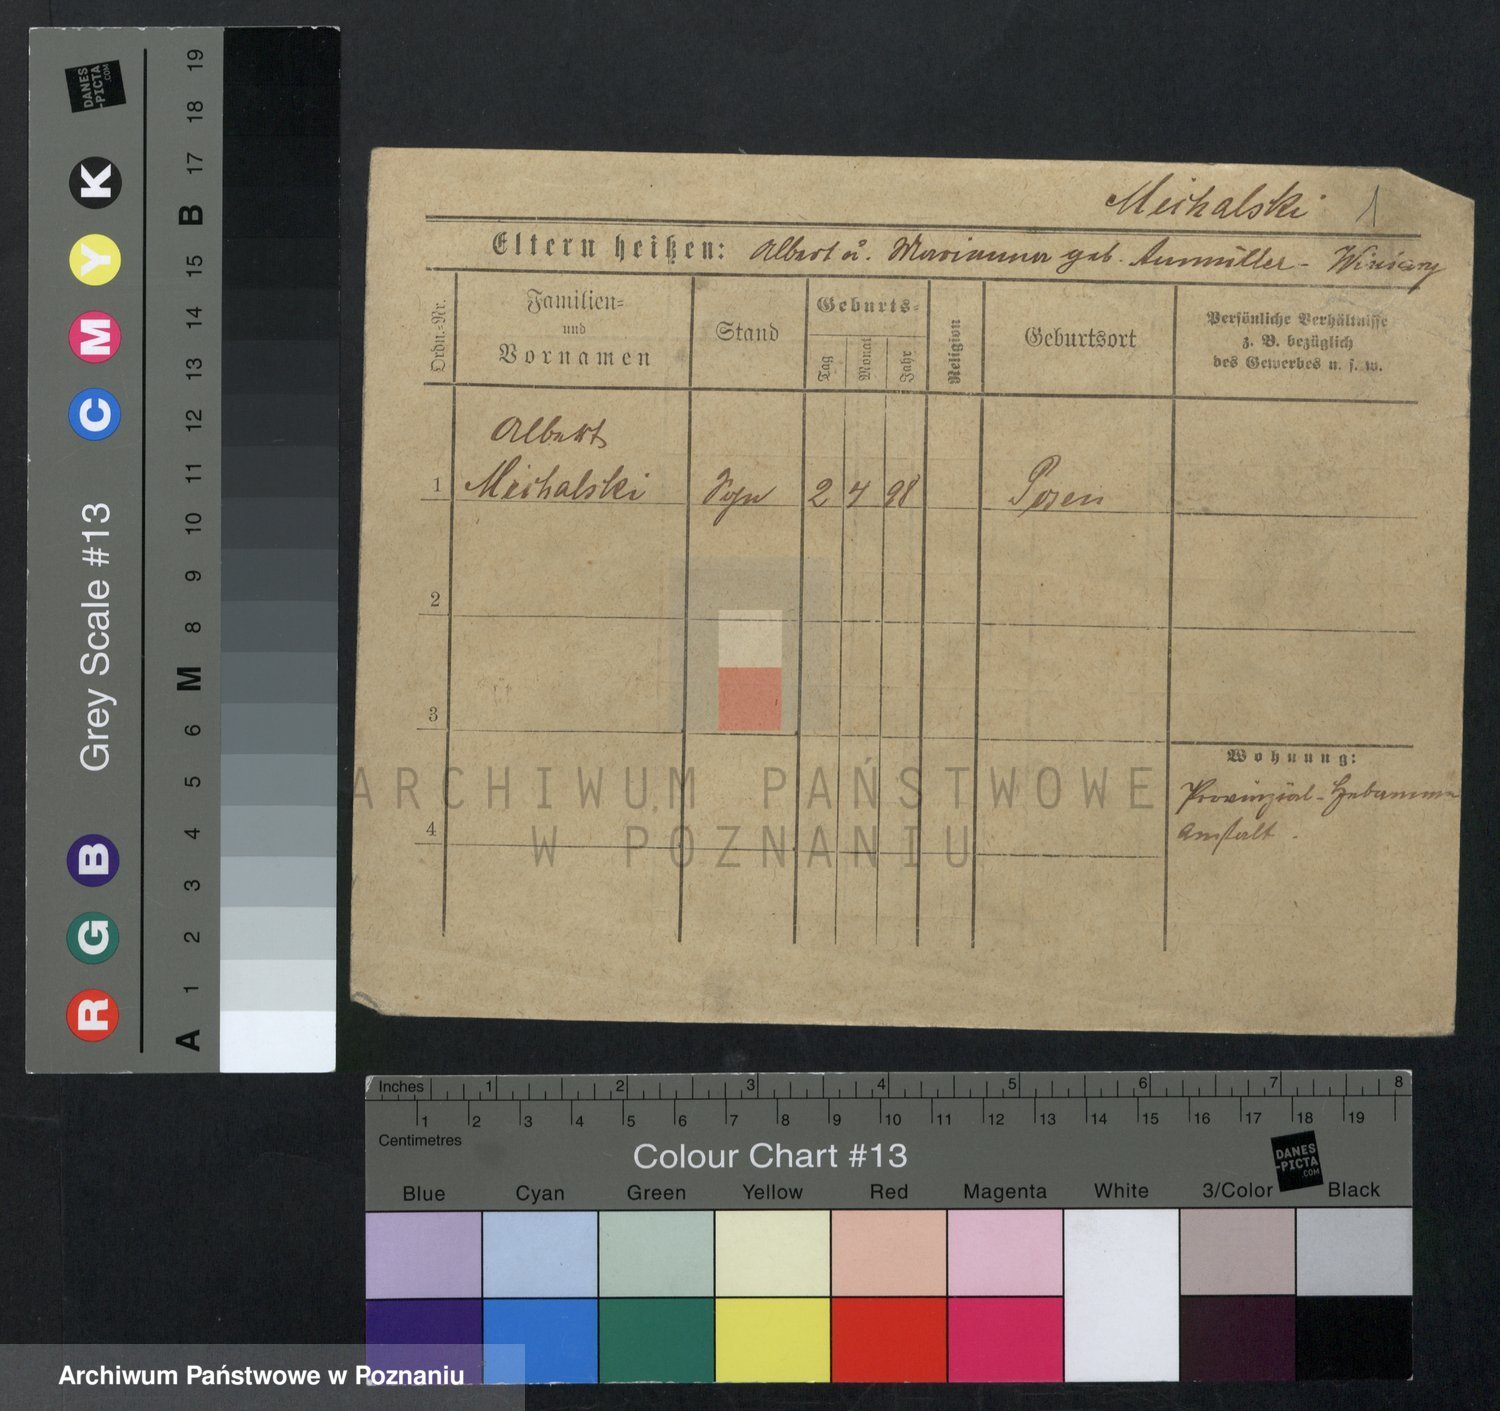 DANES
-PICTA
.COM
Grey Scale #13
R G B C M Y K
A 1 2 3 4 5 6 M 8 9 10 11 12 13 14 15 B 17 18 19
Michalski 1
Eltern heißen: Albert u. Marianna geb. Aumüller -
Ordn.-Nr.
Familien-
und
Vornamen
Stand
Geburts-
Tag
Monat
Jahr
Religion
Geburtsort
Persönliche Verhältnisse
z. B. bezüglich
des Gewerbes u. s. w.
Albert
1 Michalski 2 4 98 Posen
2
3
4
Wohnung:
Provinzial-Hebammen
Anstalt.
ARCHIWUM PAŃSTWOWE
W POZNANIU
Inches 1 2 3 4 5 6 7 8
1 2 3 4 5 6 7 8 9 10 11 12 13 14 15 16 17 18 19
Centimetres
Colour Chart #13
DANES
-PICTA
.COM
Blue Cyan Green Yellow Red Magenta White 3/Color Black
Archiwum Państwowe w Poznaniu